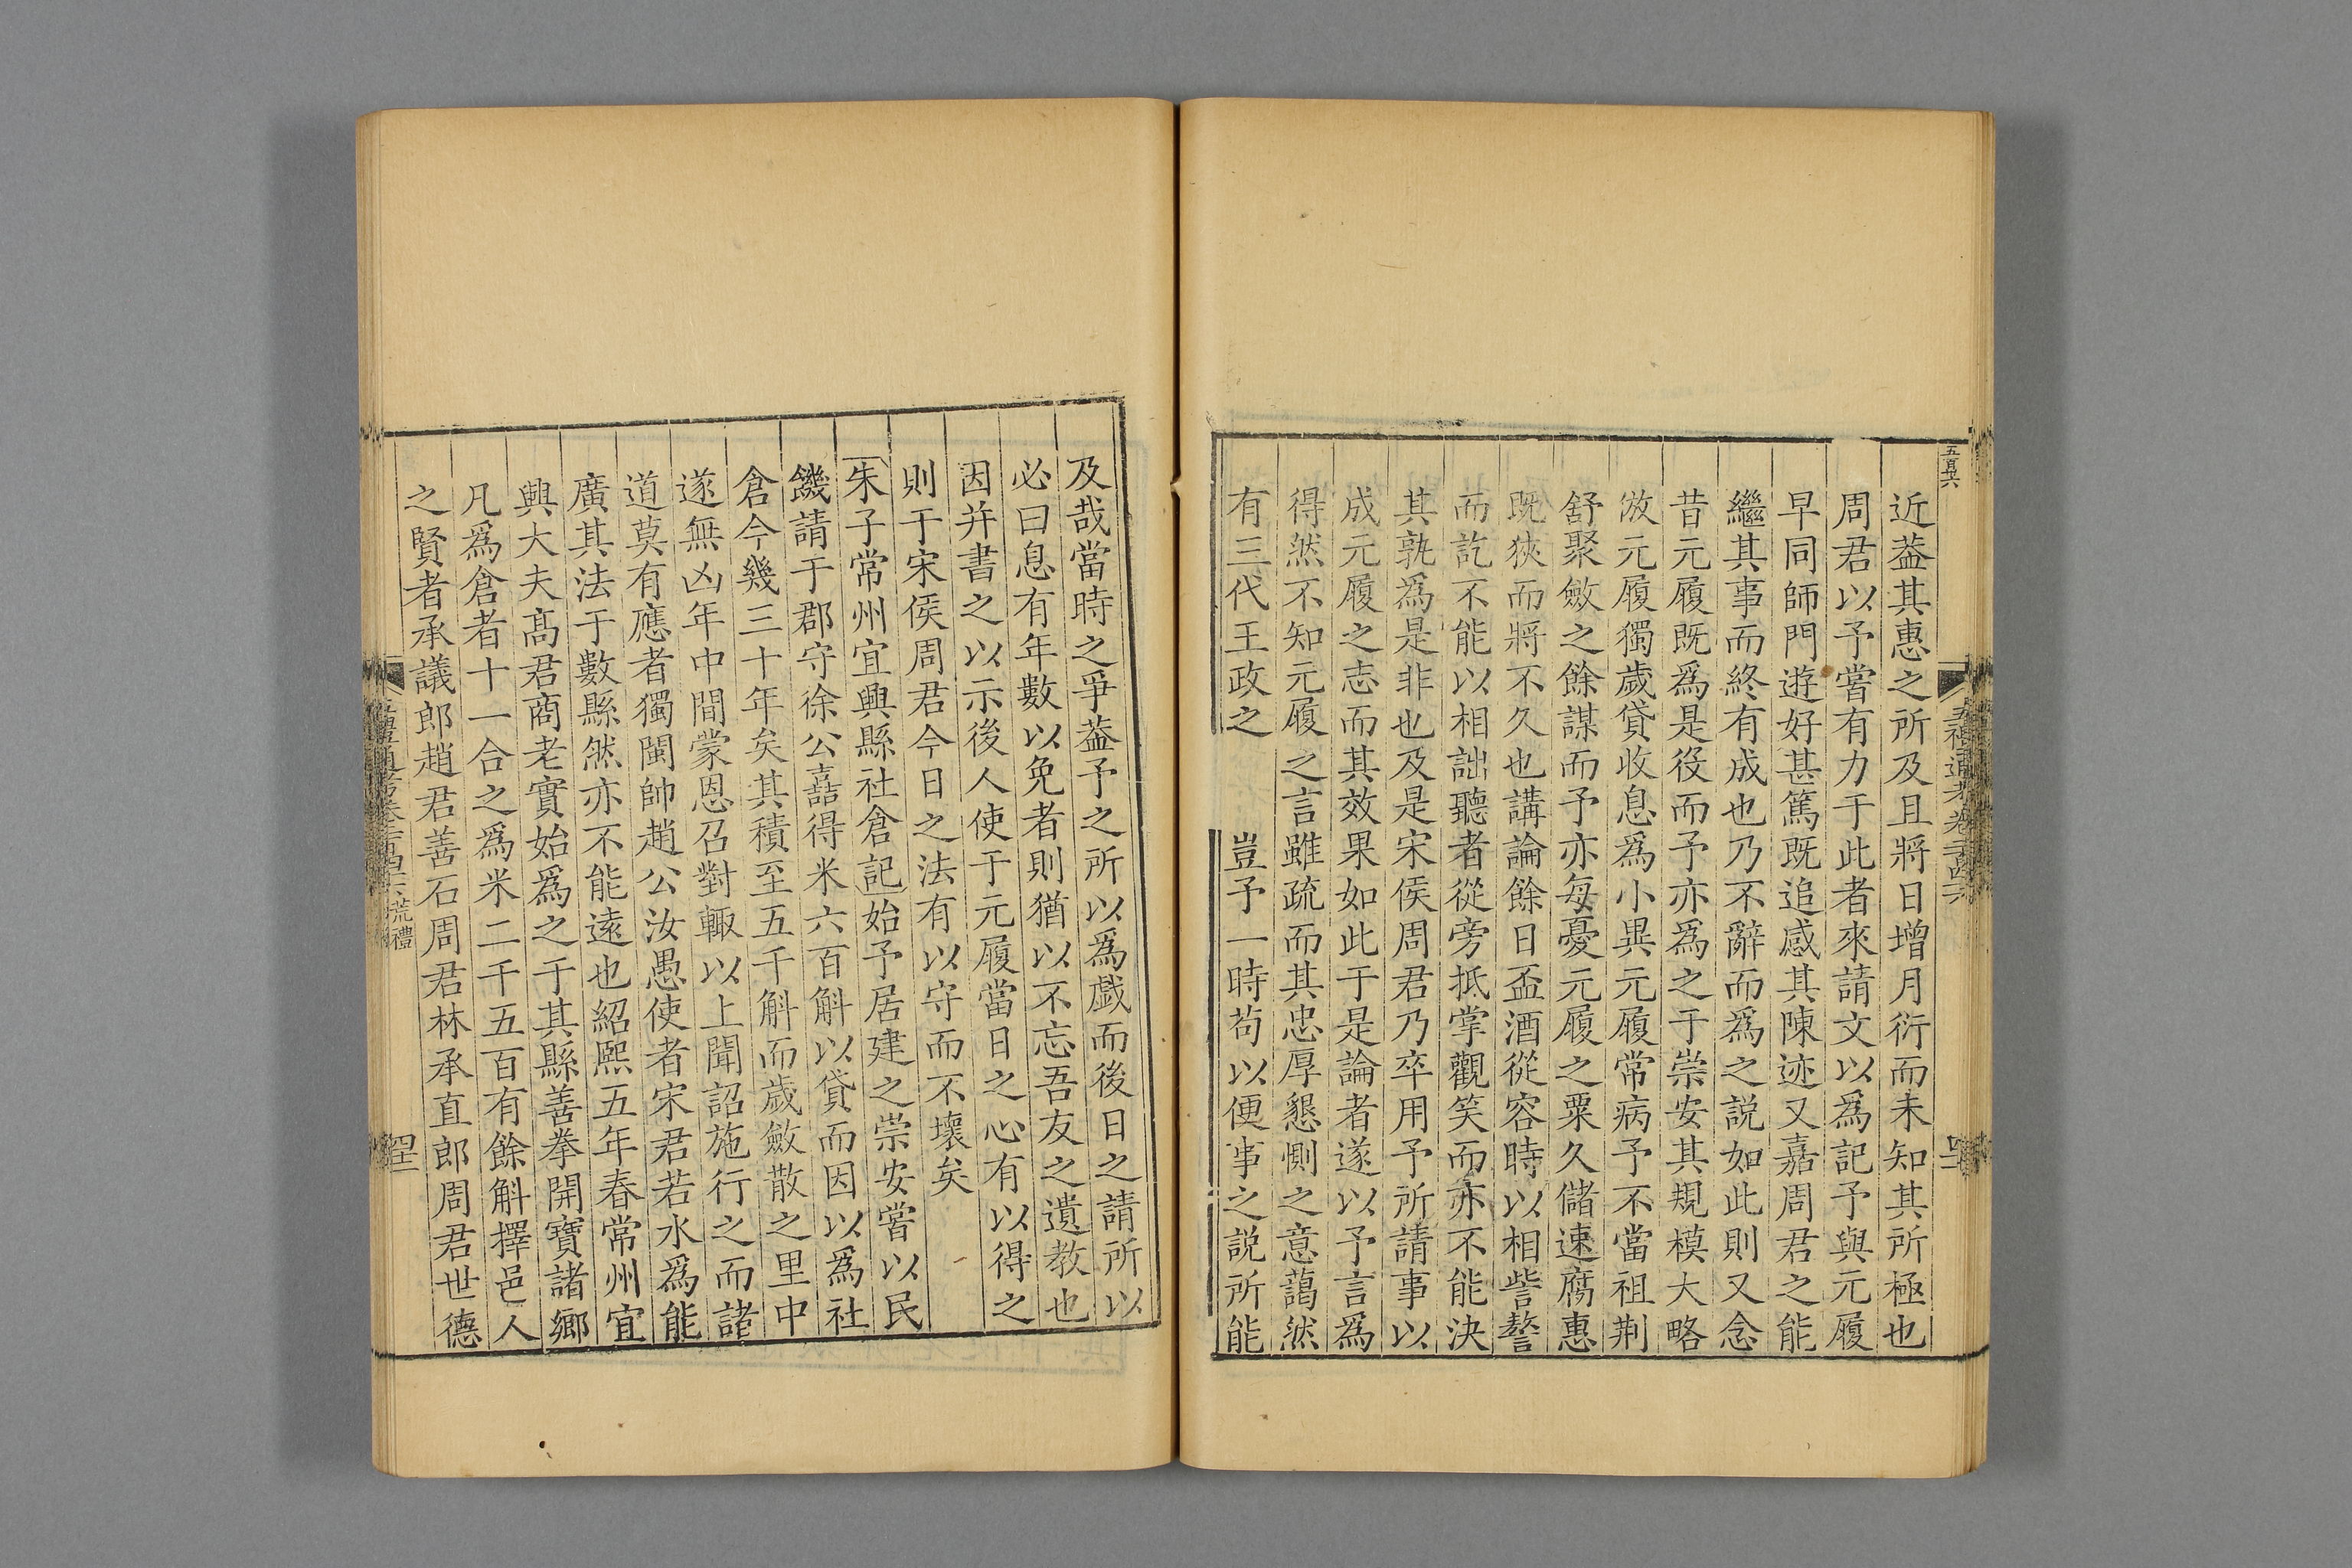 近葢其惠之所及且將日增月衍而未知其所極也
周君以予嘗有力于此者來請文以爲記予與元履
早同師門遊好甚篤既追感其陳迹又嘉周君之能
繼其事而終有成也乃不辭而爲之說如此則又念
昔元履既爲是役而予亦爲之于崇安其規模大略
放元履獨歲貸收息爲小異元履常病予不當祖荆
舒聚斂之餘謀而予亦每憂元履之粟久儲速腐惠
既狹而將不久也講論餘日盃酒從容時以相訾謷
而訖不能以相詘聽者從旁抵掌觀笑而亦不能決
其孰爲是非也及是宋侯周君乃卒用予所請事以
成元履之志而其效果如此于是論者遂以予言爲
得然不知元履之言雖疏而其忠厚懇惻之意藹然
有三代王政之豈予一時苟以便事之說所能
及哉當時之爭葢予之所以爲戲而後日之請所以
必曰息有年數以免者則猶以不忘吾友之遺教也
因并書之以示後人使于元履當日之心有以得之
則于宋侯周君今日之法有以守而不壞矣
朱子常州宜興縣社倉記始予居建之崇安嘗以民
饑請于郡守徐公嘉得米六百斛以貸而因以爲社
倉今幾三十年矣其積至五千斛而歲斂散之里中
遂無凶年中間蒙恩召對輒以上聞詔施行之而諸
道莫有應者獨閩帥趙公汝愚使者宋君若水爲能
廣其法于數縣然亦不能遠也紹熙五年春常州宜
興大夫髙君商老實始爲之于其縣善拳開寶諸鄉
凡爲倉者十一合之爲米二千五百有餘斛擇邑人
之賢者承議郎趙君善石周君林承直郎周君世德